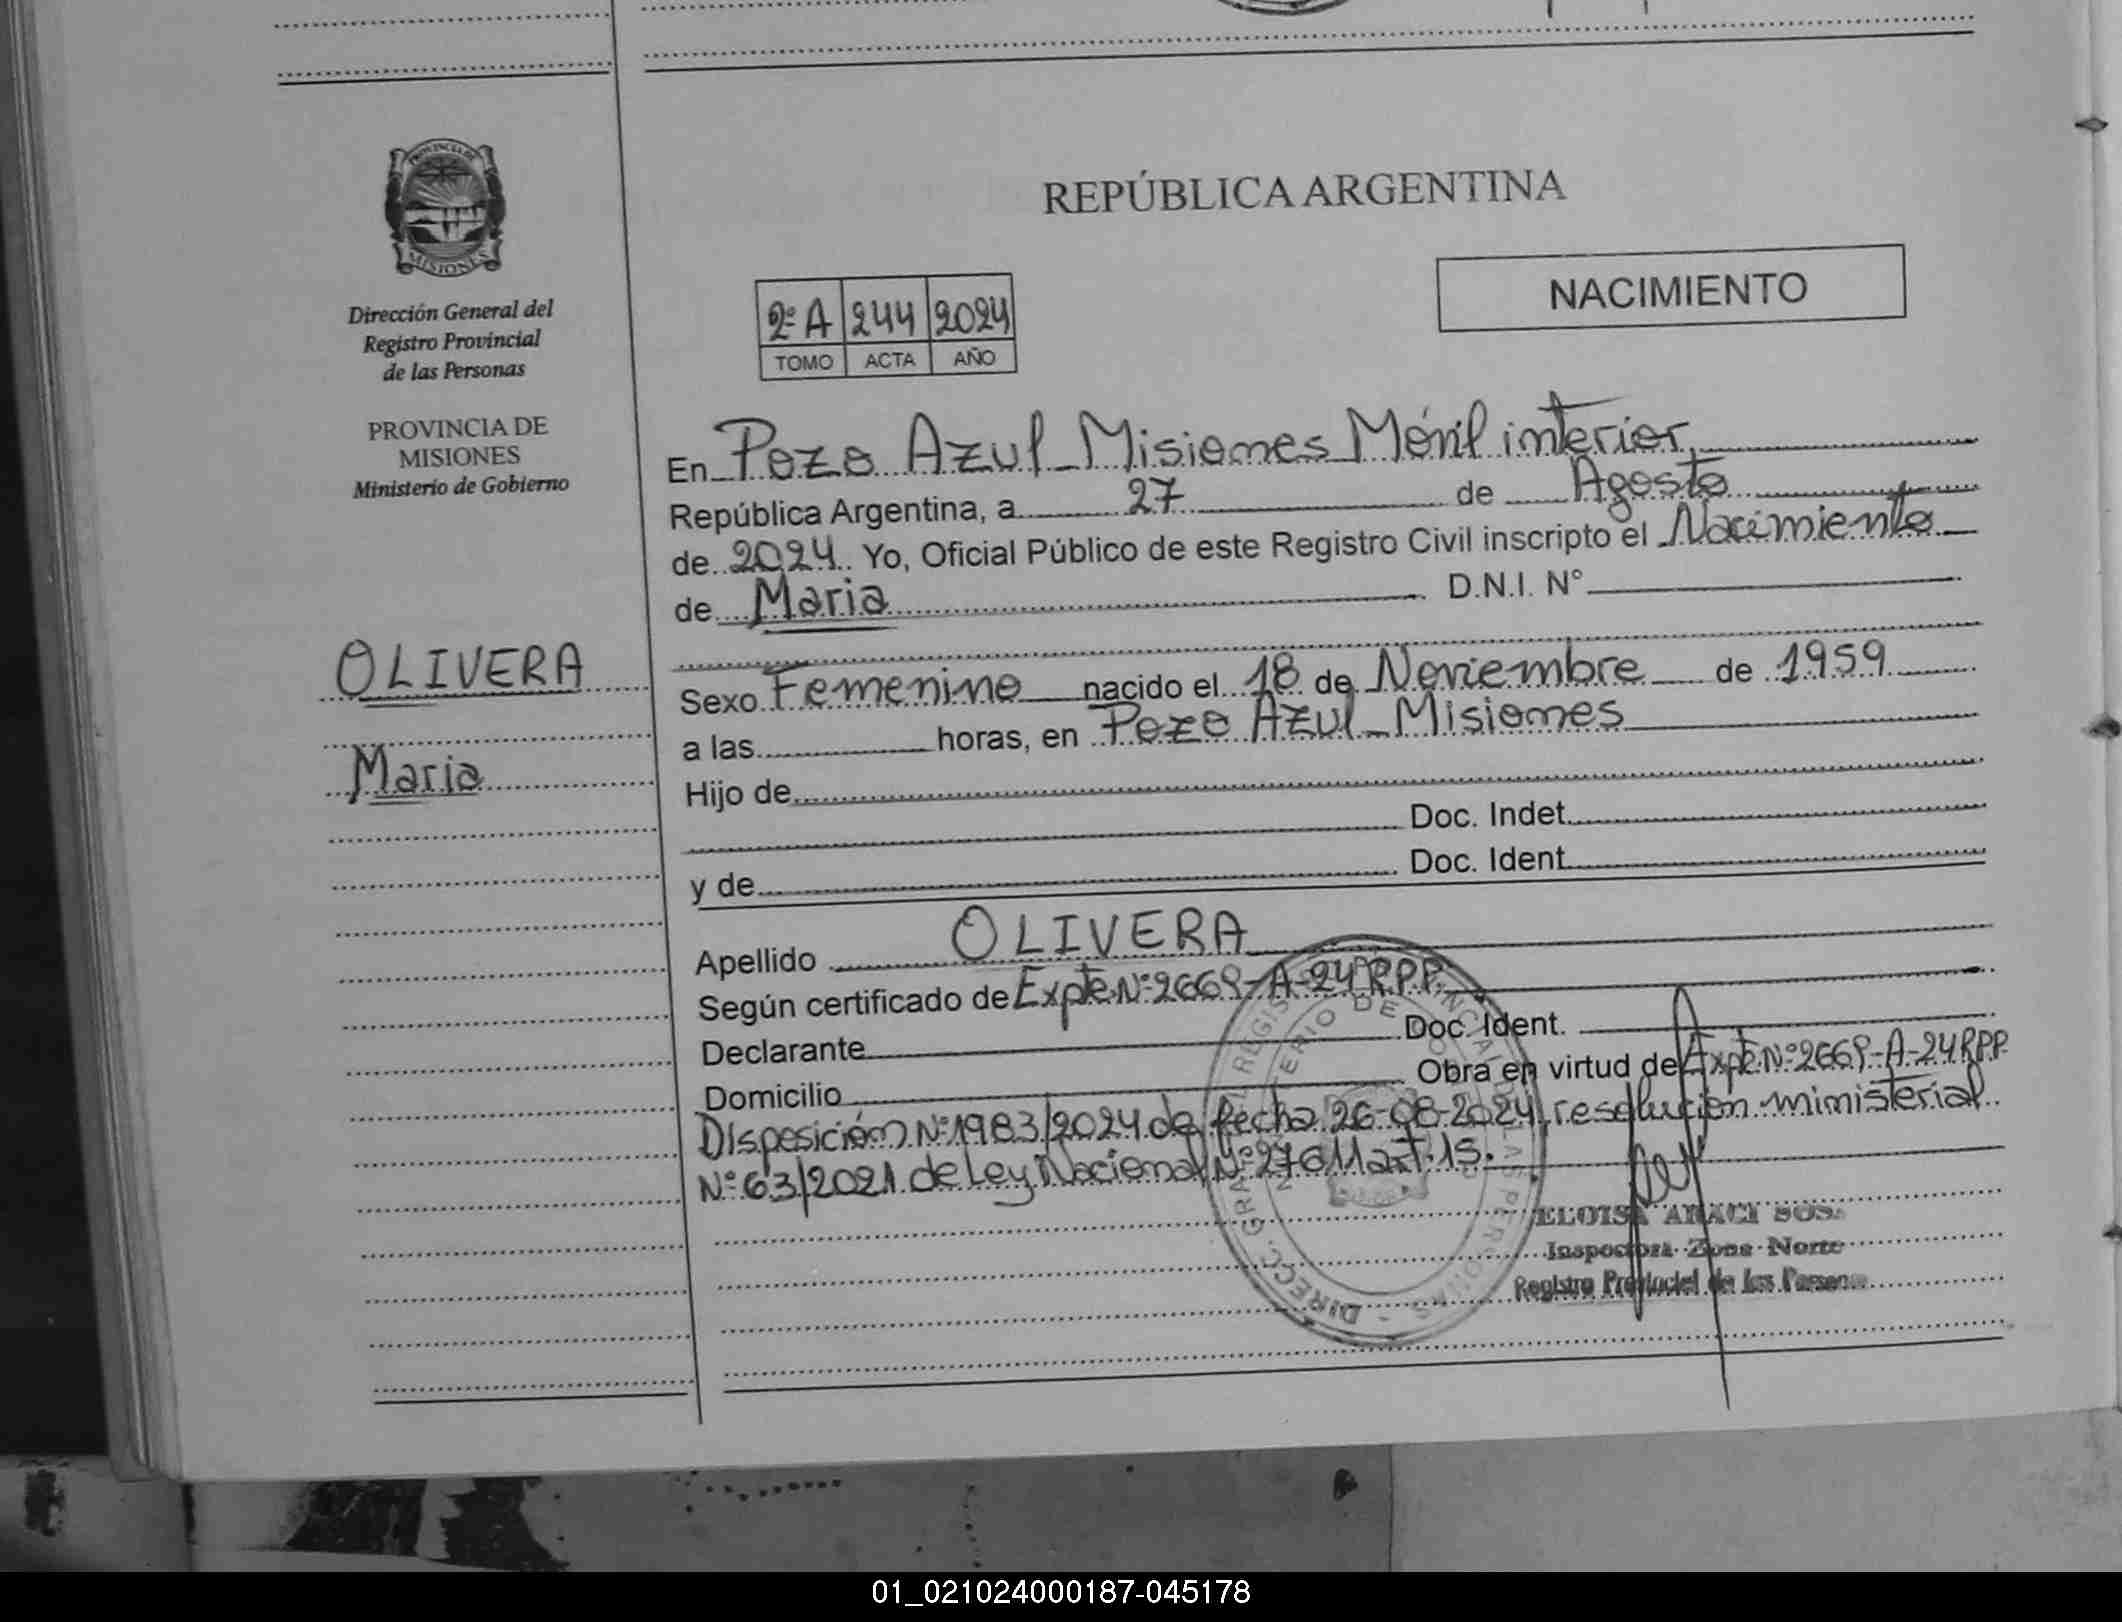 PROVINCIA DE
MISIONES
Dirección General del
Registro Provincial
de las Personas
PROVINCIA DE
MISIONES
Ministerio de Gobierno
OLIVERA
Maria
REPÚBLICA ARGENTINA
NACIMIENTO
2º A 244 2024
TOMO ACTA AÑO
En Pozo Azul - Misiones Móvil interior,
República Argentina, a 27 de Agosto
de 2024 Yo, Oficial Público de este Registro Civil inscripto el Nacimiento
de Maria D.N.I. N°
Sexo Femenino nacido el 18 de Noviembre de 1959
a las horas, en Pozo Azul - Misiones
Hijo de
Doc. Indet.
y de Doc. Ident.
Apellido OLIVERA
Según certificado de Expte Nº 2669-A-24 R.P.P.
Declarante Doc. Ident.
Domicilio Obra en virtud de Expte Nº 2669-A-24 R.P.P.
Disposición Nº 1983/2024 de fecha 26-08-2024, resolución ministerial
Nº 63/2021 de Ley Nacional Nº 27611 art. 15.
ELOISA ARACI SOSA
Inspectora Zona Norte
Registro Provincial de las Personas
01_021024000187-045178